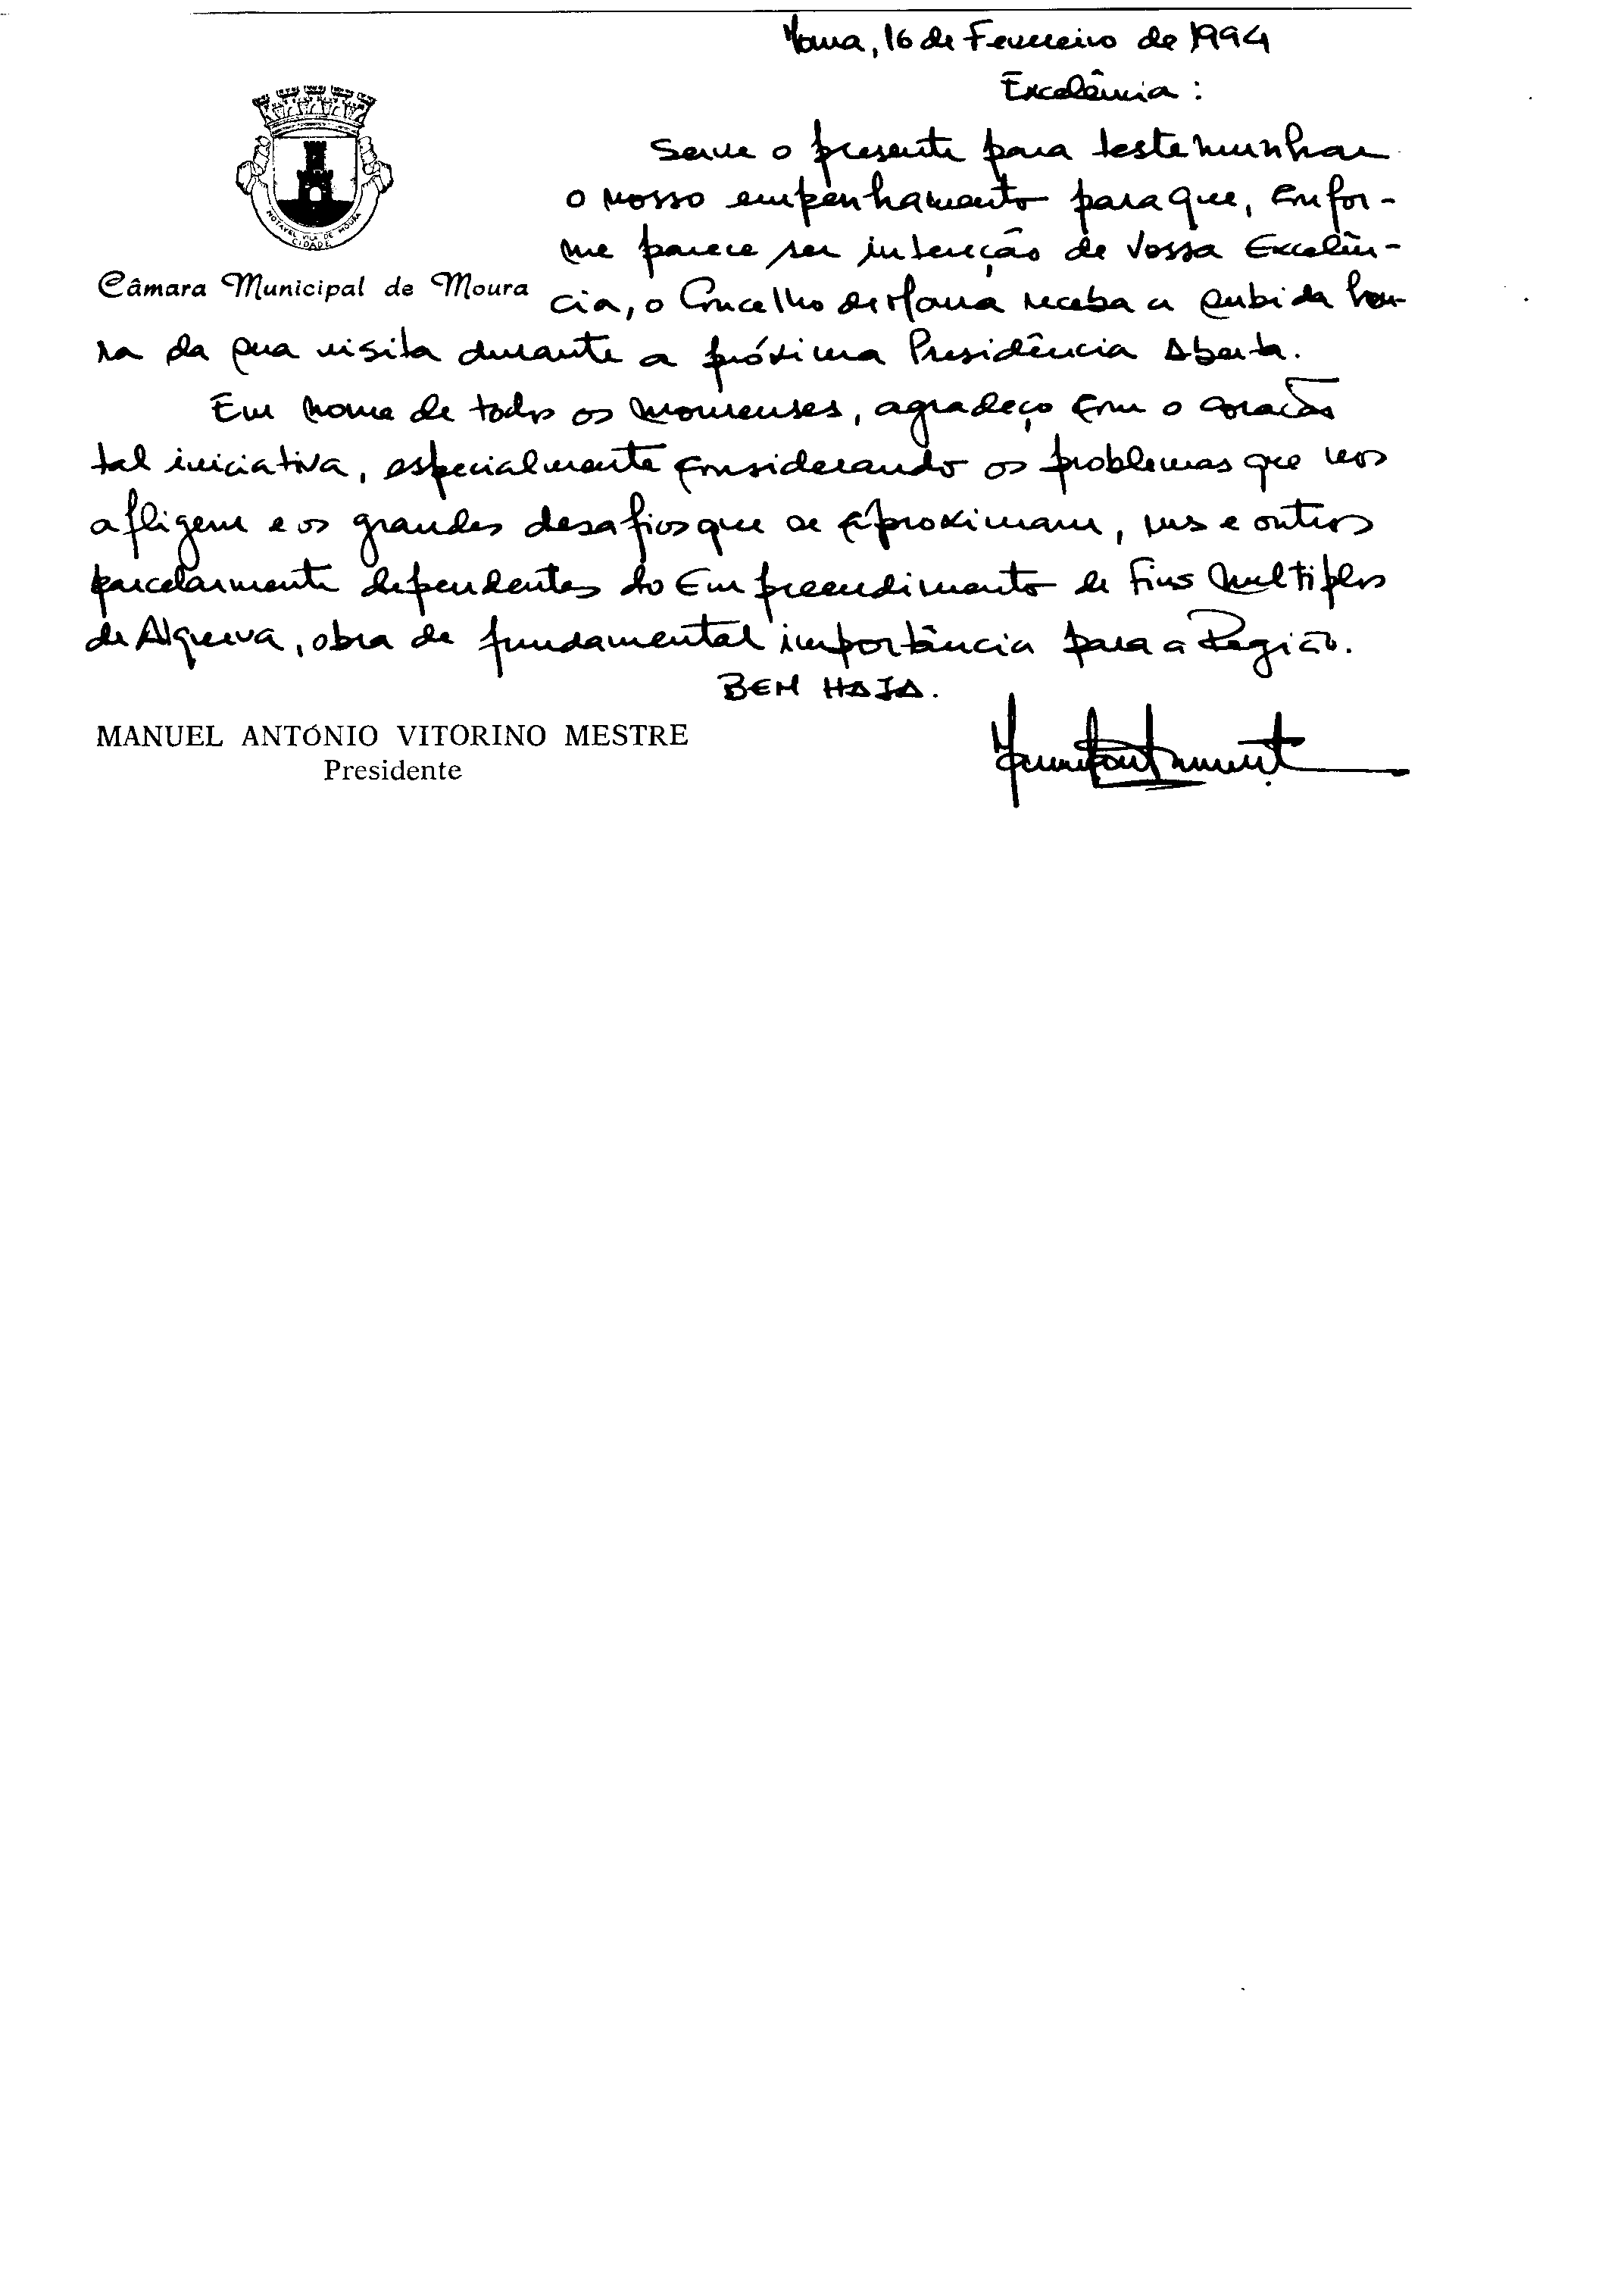 Moura, 16 de Fevereiro de 1994
Excelência:
Serve o presente para testemunhar
o nosso empenhamento para que, confor-
me parece ser intenção de Vossa Excelên-
cia, o Concelho de Moura receba a subida hon-
ra da sua visita durante a próxima Presidência Aberta.
Em nome de todos os mourenses, agradeço com o coração
tal iniciativa, especialmente considerando os problemas que nos
afligem e os grandes desafios que se aproximam, uns e outros
parcelarmente dependentes do Empreendimento de Fins Multiplos
de Alqueva, obra de fundamental importância para a Região.
BEM HAJA.
NOTÁVEL VILA DE MOURA
CIDADE
Câmara Municipal de Moura
MANUEL ANTÓNIO VITORINO MESTRE
Presidente